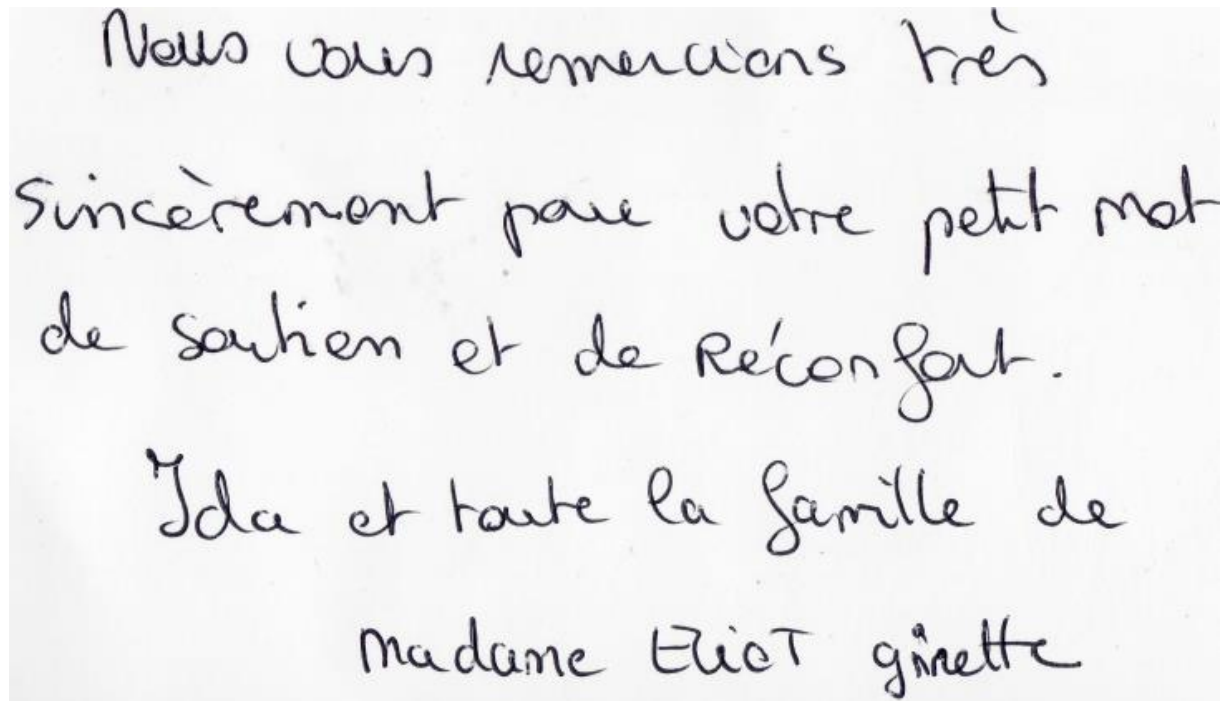 Nous vous remercions très
sincèrement pour votre petit mot
de soutien et de Réconfort.
Ida et toute la famille de
madame ELioT ginette